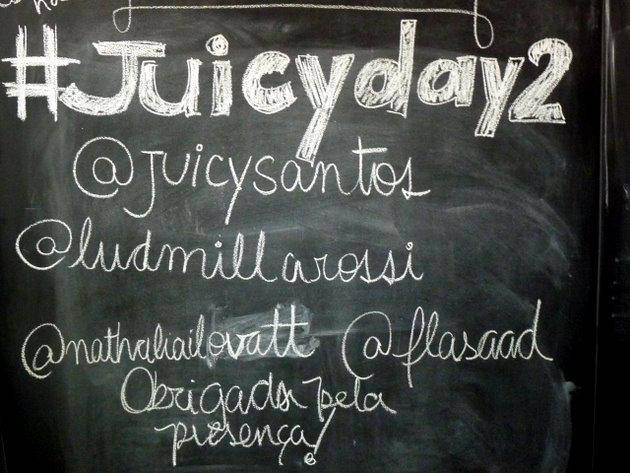 #Juicyday2
@juicysantos
@ludmillarossi
@nathaliailovatt @flasaad
Obrigada pela
presença!